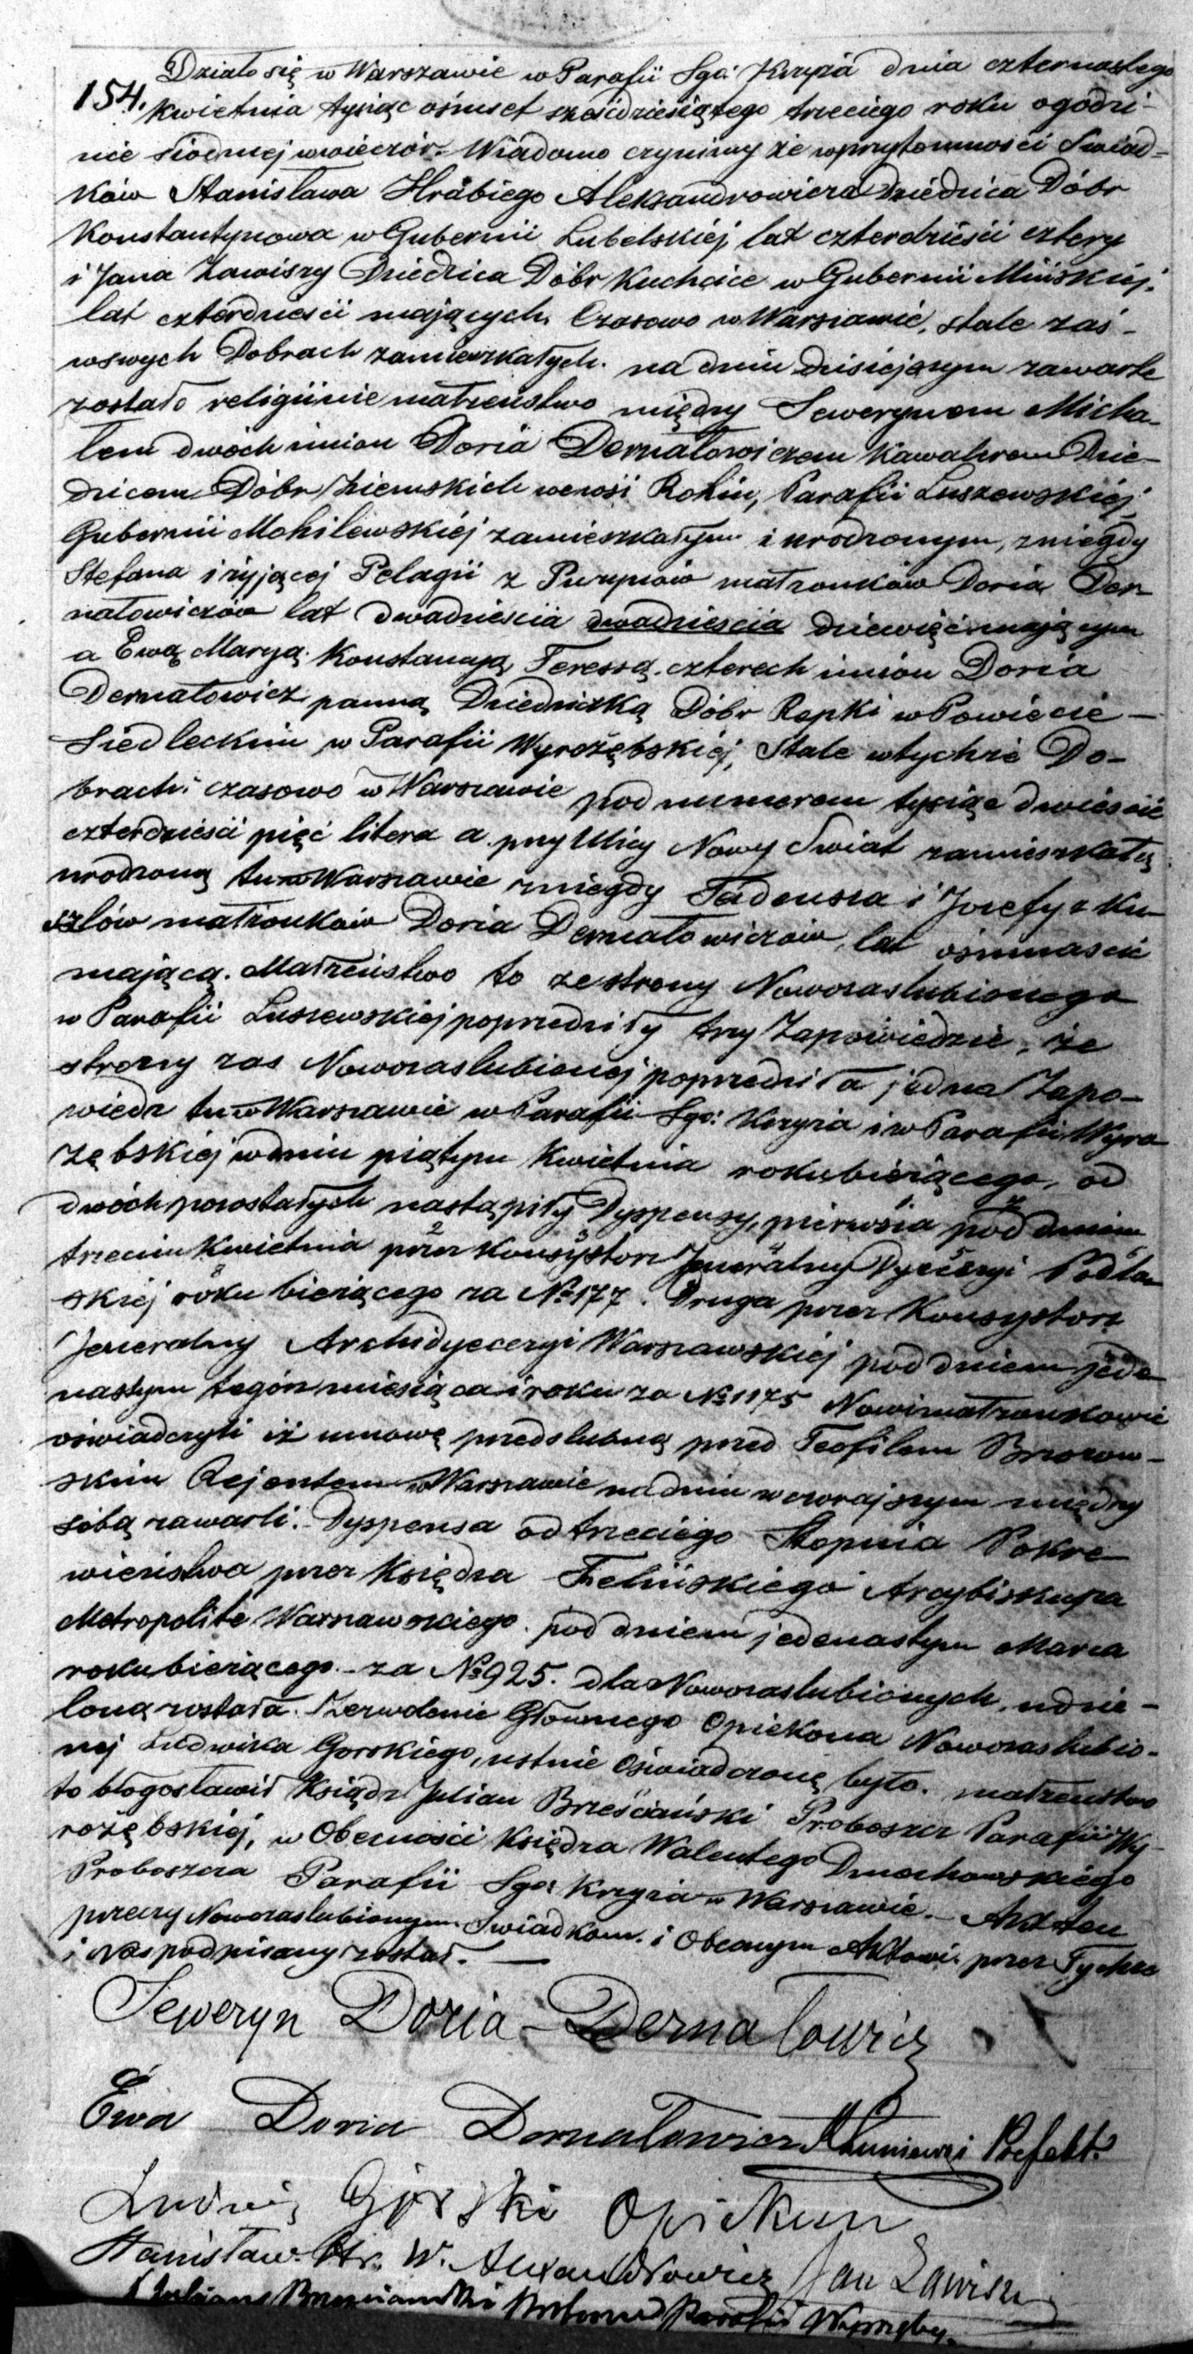 Działo się w Warszawie w Parafii Sgo: Krzyża dnia czternastego
154. Kwietnia tysiąc ośmset sześćdziesiątego trzeciego roku ogodzi-
nie siódmej wwieczór. Wiadomo czynimy że wprzytomności Swiad-
ków Stanisława Hrabiego Aleksandrowicza Dziedzica Dóbr
Konstantynowa w Gubernii Lubelskiéj, lat czterdzieści cztery
i Jana Zawiszy Dziedzica Dóbr Kuchcice w Gubernii Mińskiéj.
lat czterdzieści mających. Czasowo w Warszawie, stale zaś -
wswych Dobrach zamieszkałych. na dniu dzisiejszym zawarte
zostało religijnie małżeństwo między Sewerynem Micha-
łem dwóch imion Doria Dernałowiczem Kawalerem Dzie-
dzicem Dóbr Ziemskich wewsi Rohin, Parafii Luszewskiéj
Gubernii Mohilewskiéj zamieszkałym i urodzonym, zniegdy
Stefana i żyjącej Pelagii z Puzynów małżonków Doria Der
nałowiczów lat dwadzieścia dwadzieścia dziewięć mającym
a Ewą Maryą Konstancyą Teressą czterech imion Doria
Dernałowicz panną Dziedziczką Dóbr Repki w Powiecie -
Siedleckim w Parafii Wyrozębskiéj, Stale wtychże Do-
brach: czasowo w Warszawie pod numerem tysiąc dwieście
czterdzieści pięć litera a. przy Ulicy Nowy Swiat zamieszkałą
urodzoną tu w Warszawie zniegdy Tadeusza i Józefy z Ku-
szlów małżonków Doria Dernałowiczów, lat ośmnaście
mającą. Małżeństwo to ze strony Nowozaslubionego
w Parafii Luszewskiéj poprzedziły trzy Zapowiedzie, ze
strony zas Nowozaslubionéj poprzedziła jedna Zapo-
wiedz tu w Warszawie w Parafii Sgo: Krzyża i w Parafii Wyro
zębskiéj wdniu piątym Kwietnia roku bieżącego, od
dwóch pozostałych nastąpiły Dyspensy, pierwsza pod dniem
trzecim Kwietnia przez Konsystorz Jeneralny Dyecezyi Podla
skiéj roku bieżącego za № 177. Druga przez Konsystorz
Jeneralny Archidyecezyi Warszawskiéj pod dniem jede
nastym tegóż miesiąca i roku za № 1175 Nowi małżonkowie
oświadczyli iż umowę przedslubną przed Teofilem Brzozow-
skim Rejentem w Warszawie na dniu wczorajszym między
sobą zawarli. Dyspensa od trzeciego Stopnia Pokre-
wieństwa przez Księdza Felińskiego Arcybiskupa
Metropolitę Warszawskiego. pod dniem jedenastym Marca
roku bieżącego - za № 925. dla Nowozaslubionych, udzie-
loną została. Zezwolenie Głównego Opiekuna Nowozaslubio-
néj Ludwika Gorskiego, ustnie Oświadczone było. małżeństwo
to błogosławił Ksiądz Julian Brześciański Proboszcz Parafii Wy-
rozębskiéj, w Obecności Księdza Walentego Dmochowskiego
Proboszcza Parafii Sgo: Krzyża w Warszawie. - Akt ten
przeczy Nowozaslubionym Swiadkom. i Obecnym Aktowi. przez Tychże
i Nas podpisany został. -
Seweryn Doria - Dernałowicz
Ewa Doria Dernałowicz Prefekt.
Ludwik Górski Opiekun
Stanisław Hr. W. Alexandrowicz Jan Zawisza